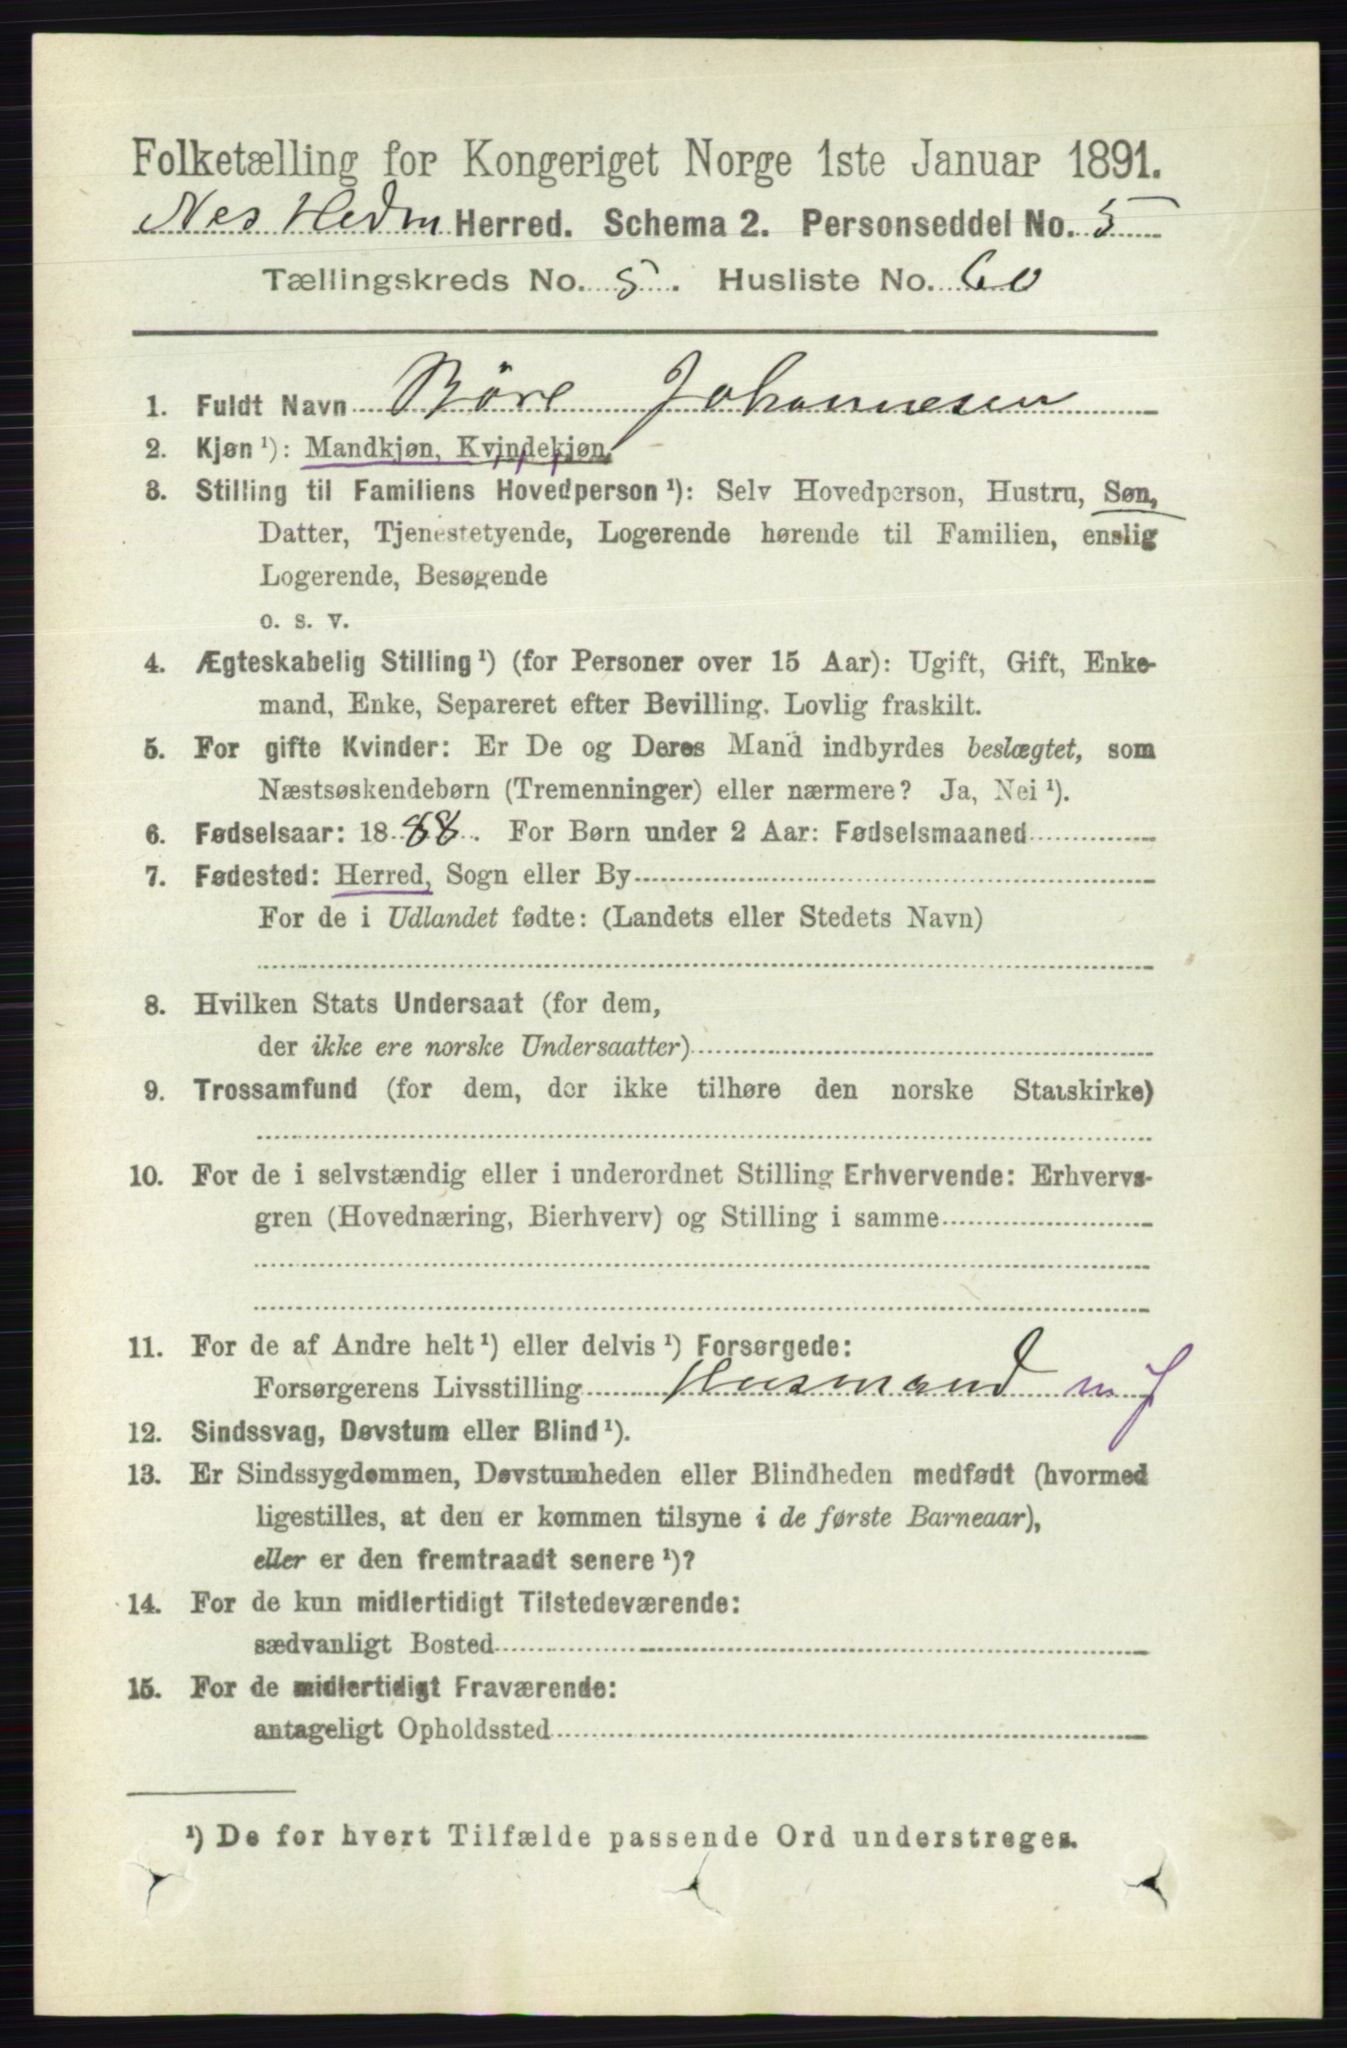 Folketælling for Kongeriget Norge 1ste Januar 1891.
Nes Hedm Herred. Schema 2. Personseddel No. 5
Tællingskreds No. 5. Husliste No. 60
1. Fuldt Navn Böre Johannesen
2. Kjøn ¹): Mandkjøn, Kvindekjøn.
3. Stilling til Familiens Hovedperson ¹): Selv Hovedperson, Hustru, Søn,
Datter, Tjenestetyende, Logerende hørende til Familien, enslig
Logerende, Besøgende
o. s. v.
4. Ægteskabelig Stilling ¹) (for Personer over 15 Aar): Ugift, Gift, Enke-
mand, Enke, Separeret efter Bevilling. Lovlig fraskilt.
5. For gifte Kvinder: Er De og Deres Mand indbyrdes beslægtet, som
Næstsøskendebørn (Tremenninger) eller nærmere? Ja, Nei ¹).
6. Fødselsaar: 1888. For Børn under 2 Aar: Fødselsmaaned
7. Fødested: Herred, Sogn eller By
For de i Udlandet fødte: (Landets eller Stedets Navn)
8. Hvilken Stats Undersaat (for dem,
der ikke ere norske Undersaatter)
9. Trossamfund (for dem, der ikke tilhøre den norske Statskirke)
10. For de i selvstændig eller i underordnet Stilling Erhvervende: Erhvervs-
gren (Hovednæring, Bierhverv) og Stilling i samme
11. For de af Andre helt ¹) eller delvis ¹) Forsørgede:
Forsørgerens Livsstilling Husmand m J
12. Sindssvag, Døvstum eller Blind ¹).
13. Er Sindssygdommen, Døvstumheden eller Blindheden medfødt (hvormed
ligestilles, at den er kommen tilsyne i de første Barneaar),
eller er den fremtraadt senere ¹)?
14. For de kun midlertidigt Tilstedeværende:
sædvanligt Bosted
15. For de midlertidigt Fraværende:
antageligt Opholdssted
¹) De for hvert Tilfælde passende Ord understreges.